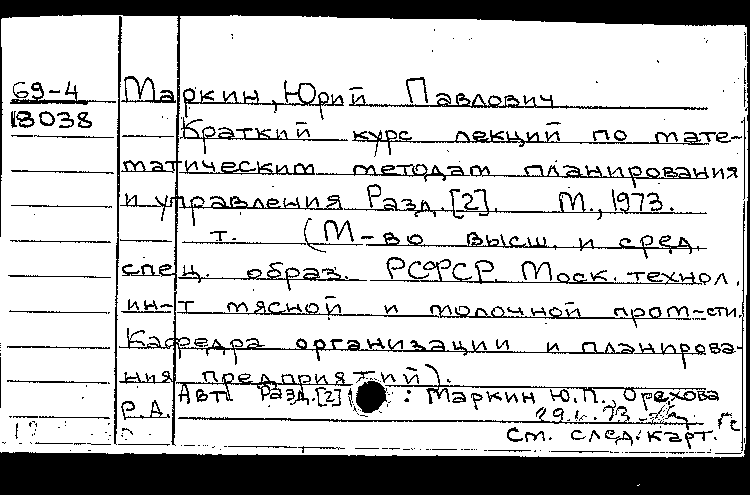 69-4 Маркин, Юрий Павлович
18038 Краткий курс лекций по мате-
матическим методам планирования
и управления Разд.[2]. М., 1973.
т. (М-во высш. и сред.
спец. образ. РСФСР. Моск. технол.
ин-т мясной и молочной пром-сти.
Кафедра организации и планирова-
ния предприятий).
Авт. Разд.[2]: Маркин Ю.П., Орехова
Р.А.
См. след. карт.